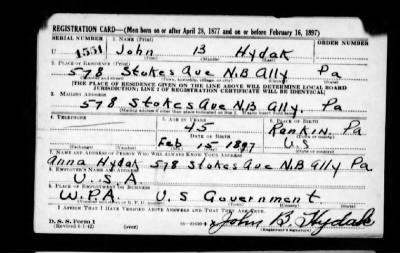 REGISTRATION CARD—(Men born on or after April 28, 1877 and on or before February 16, 1897)
SERIAL NUMBER 1. NAME (Print)
U 1551 John B Hydak
2. PLACE OF RESIDENCE (Print)
578 Stokes Ave N.B Ally Pa
[THE PLACE OF RESIDENCE GIVEN ON THE LINE ABOVE WILL DETERMINE LOCAL BOARD
JURISDICTION; LINE 2 OF REGISTRATION CERTIFICATE WILL BE IDENTICAL]
3. MAILING ADDRESS
578 Stokes Ave N.B Ally. Pa
4. TELEPHONE 5. AGE IN YEARS 6. PLACE OF BIRTH
45 Rankin. Pa
DATE OF BIRTH
Feb 15 1897 U.S
7. NAME AND ADDRESS OF PERSON WHO WILL ALWAYS KNOW YOUR ADDRESS
Anna Hydak 578 Stokes Ave N.B Ally Pa
8. EMPLOYER'S NAME AND ADDRESS
U.S.A
9. PLACE OF EMPLOYMENT OR BUSINESS
W.P.A. U S Government.
I AFFIRM THAT I HAVE VERIFIED ABOVE ANSWERS AND THAT THEY ARE TRUE.
D. S. S. Form 1
(Revised 4-1-42) (over) John B. Hydak
(Registrant's signature)